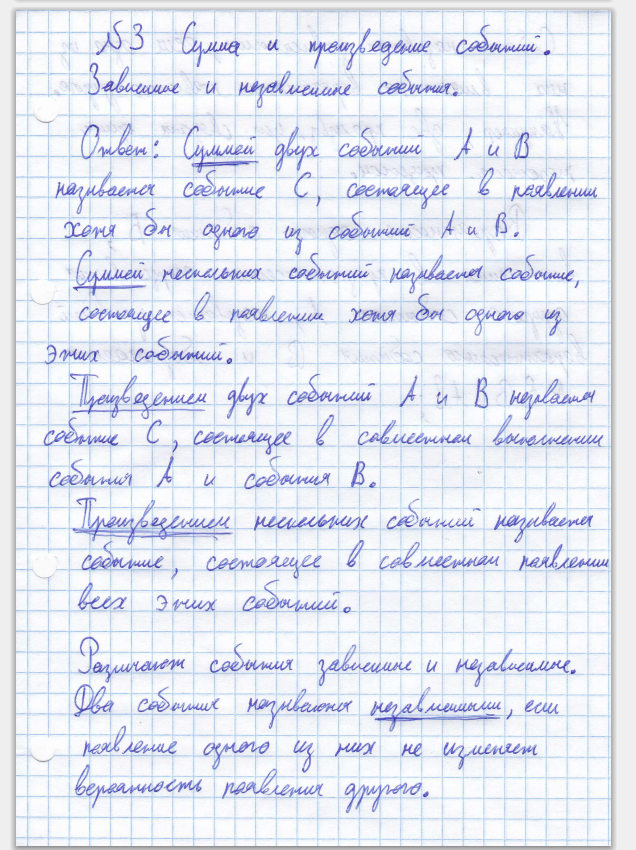 №3 Сумма и произведение событий.
Зависимые и независимые события.
Ответ: Суммой двух событий A и B
называется событие C, состоящее в появлении
хотя бы одного из событий A и B.
Суммой нескольких событий называется событие,
состоящее в появлении хотя бы одного из
этих событий.
Произведением двух событий A и B называется
событие C, состоящее в совместном выполнении
события A и события B.
Произведением нескольких событий называется
событие, состоящее в совместном появлении
всех этих событий.
Различают события зависимые и независимые.
Два события называются независимыми, если
появление одного из них не изменяет
вероятность появления другого.